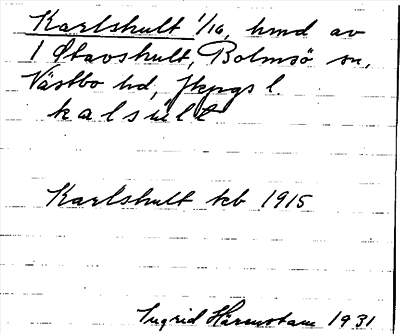 Karlshult 1/16, hmd av
1 Stavshult, Bolmsö sn,
Västbo hd, Jkpgs l.
kalsult
Karlshult kb 1915
Ingrid 1931